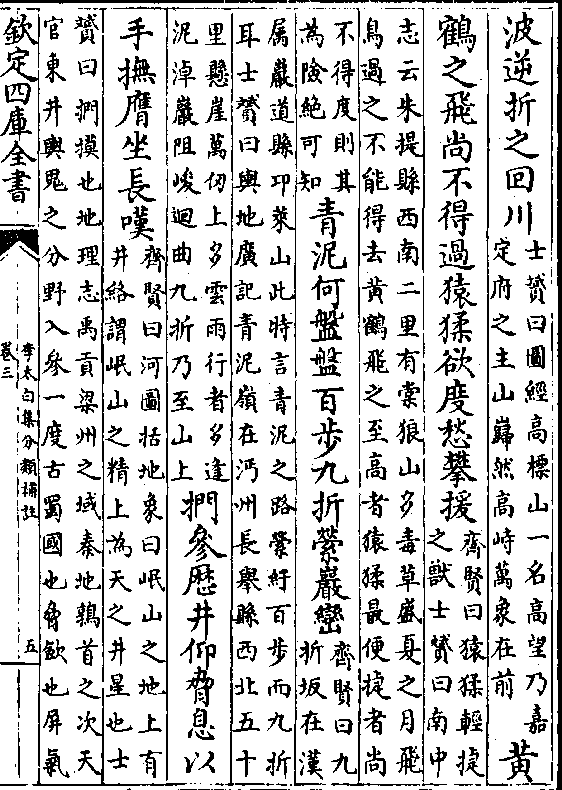 波逆折之回川
士贇曰圖經高標山一名高望乃嘉
定府之主山巋然高峙萬象在前
黃
鶴之飛尚不得過猿猱欲度愁攀援
齊賢曰猿猱輕捷
之獸士贇曰南中
志云朱提縣西南二里有棠狼山多毒草盛夏之月飛
鳥過之不能得去黃鶴飛之至高者猿猱最便捷者尚
不得度則其
為險絶可知
青泥何盤盤百步九折縈巖巒
齊賢曰九
折坂在漢
属巖道縣邛萊山此時言青泥之路縈紆百步而九折
耳士贇曰輿地廣記青泥嶺在沔州長舉縣西北五十
里懸崖萬仞上多雲雨行者多逢
泥淖巖阻峻迴曲九折乃至山上
捫參歴井仰脅息以
手撫膺坐長嘆
齊賢曰河圖括地象曰岷山之地上有
井絡謂岷山之精上為天之井星也士
贇曰捫摸也地理志禹貢梁州之域秦地鶉首之次天
官東井輿鬼之分野入參一度古蜀國也脅斂也屏氣
欽定四庫全書
李太白集分類補註
卷三
五